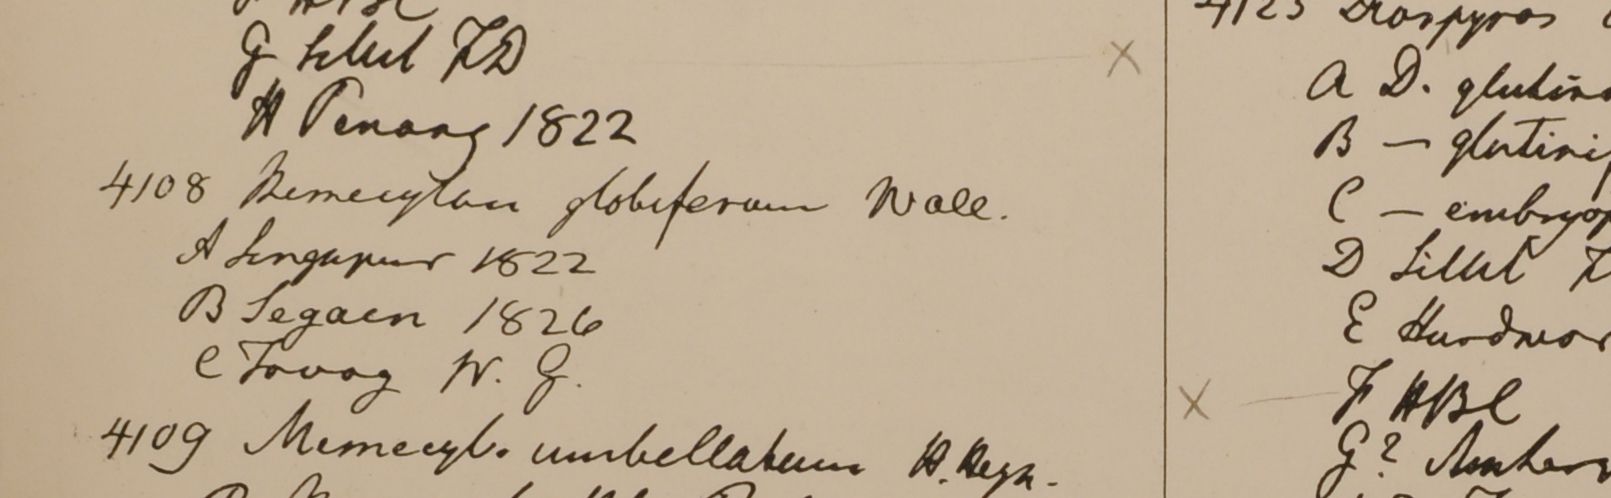 F HBC
G Sillet FD
H Penang 1822
4108 Memecylon globiferum Wall.
A Singapur 1822
B Segaen 1826
C Tavoy W. G.
4109 Memecyl. umbellatum H. Heyn.
4123 Diospyros
A D. glutin
B — glutinif
C — embryop
D Sillet F
E Hurdwar
F HBC
G? Amher